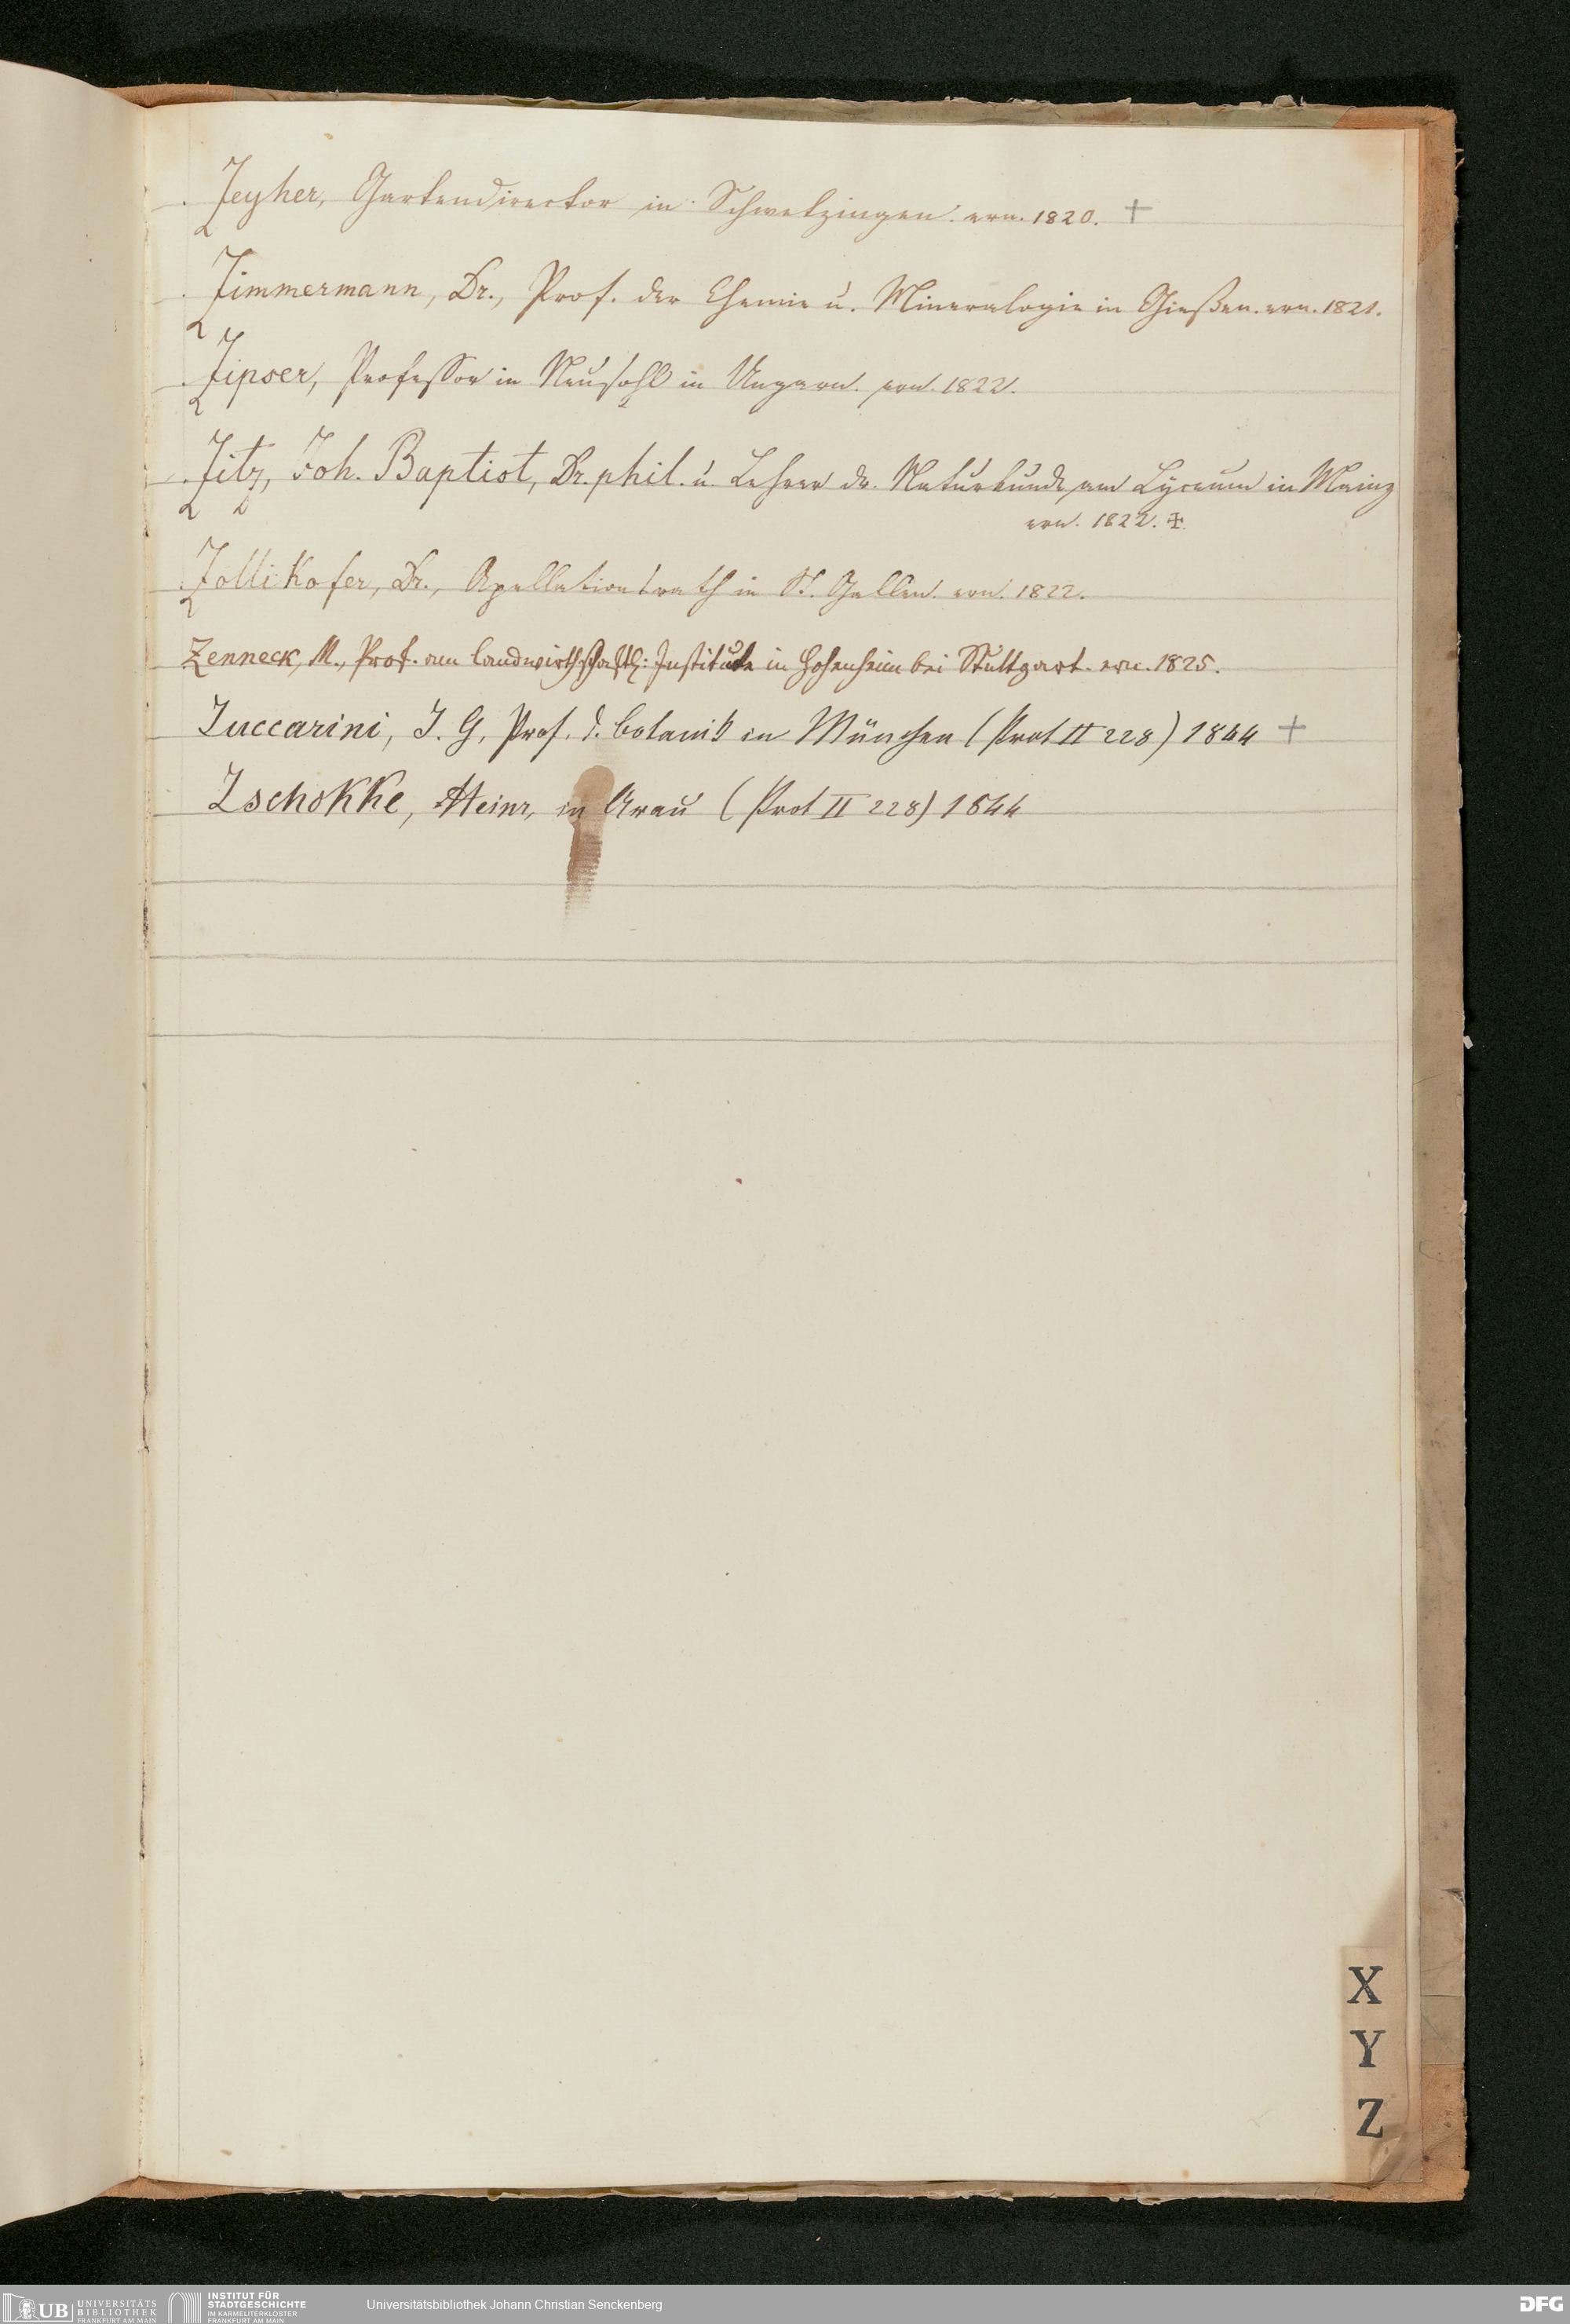 Zeyher, Gartendirector in Schwetzingen. ern. 1820. +
Zimmermann, Dr., Prof. der Chemie u. Mineralogie in Gießen. ern. 1821.
Zipser, Professor in Neusohl in Ungarn. ern. 1822.
Zitz, Joh. Baptist, Dr. phil. u. Lehrer dr. Naturkunde am Lyceum in Mainz
ern. 1822. ✠
Zollikofer, Dr., Apellationsrath in St. Gallen. ern. 1822.
Zenneck, M., Prof. am landwirthschaftl: Institute in Hohenheim bei Stuttgart. ern. 1825.
Zuccarini, J. G, Prof. d. botanik in München (Prot II 228) 1844 +
Zschokke, Heinr, in Arau (Prot II 228) 1844
X
Y
Z
UB UNIVERSITÄTS
BIBLIOTHEK
FRANKFURT AM MAIN
INSTITUT FÜR
STADTGESCHICHTE
IM KARMELITERKLOSTER
FRANKFURT AM MAIN
Universitätsbibliothek Johann Christian Senckenberg
DFG